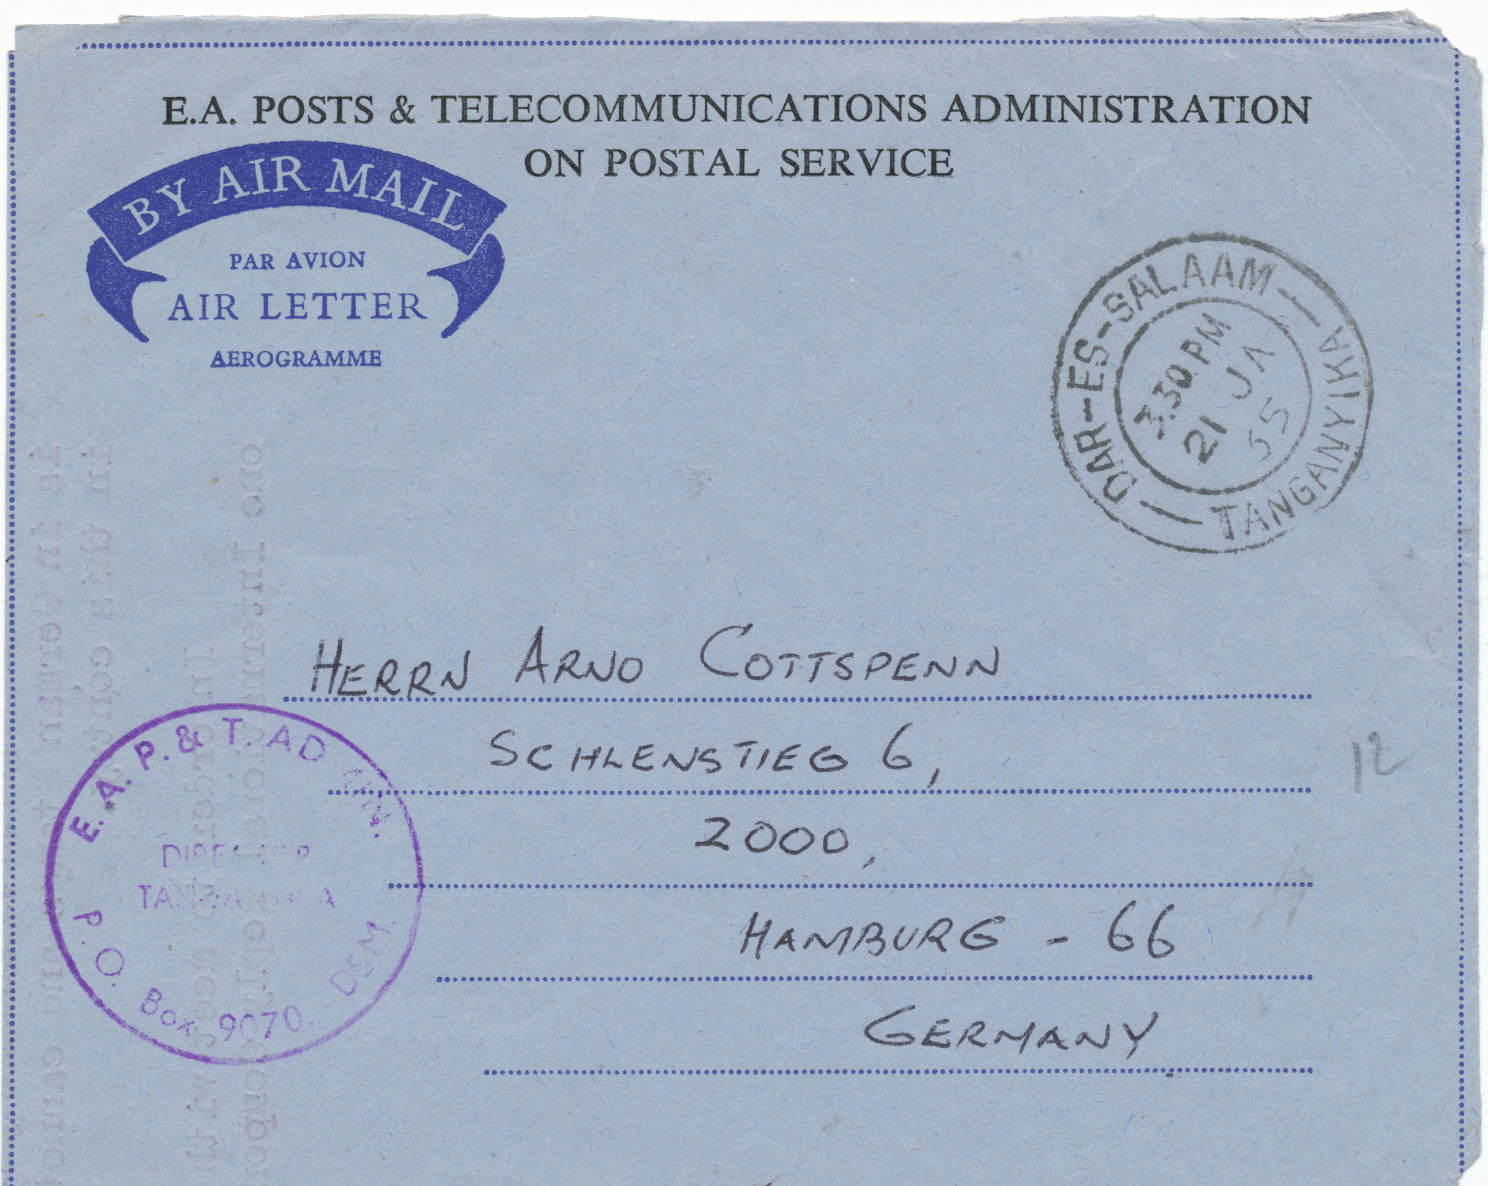 E.A. POSTS & TELECOMMUNICATIONS ADMINISTRATION
ON POSTAL SERVICE
BY AIR MAIL
PAR AVION
AIR LETTER
AEROGRAMME
DAR-ES-SALAAM
3.30 PM
21 JA
65
TANGANYIKA
HERRN ARNO COTTSPENN
SCHLENSTIEG 6,
2000,
HAMBURG - 66
GERMANY
12
E.A. P. & T. ADMIN.
DIRECTOR
TANGANYIKA
P.O. Box 9070, DSM.